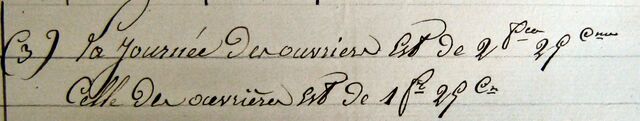 (3) la journée des ouvriers est de 2 fcs 25 cmes
Celle des ouvrières est de 1 fr 25 cs